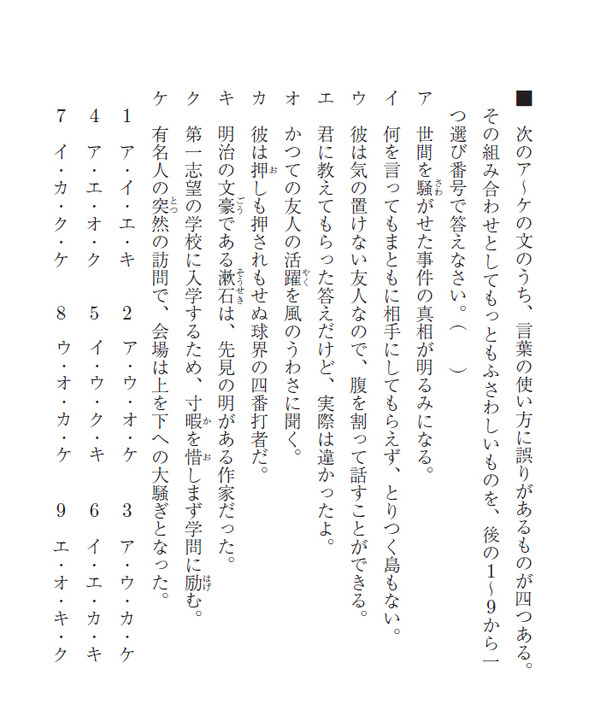 ■ 次のア～ケの文のうち、言葉の使い方に誤りがあるものが四つある。
その組み合わせとしてもっともふさわしいものを、後の1～9から一
つ選び番号で答えなさい。（　　）
ア 世間を騒がせた事件の真相が明るみになる。
イ 何を言ってもまともに相手にしてもらえず、とりつく島もない。
ウ 彼は気の置けない友人なので、腹を割って話すことができる。
エ 君に教えてもらった答えだけど、実際は違かったよ。
オ かつての友人の活躍を風のうわさに聞く。
カ 彼は押しも押されもせぬ球界の四番打者だ。
キ 明治の文豪である漱石は、先見の明がある作家だった。
ク 第一志望の学校に入学するため、寸暇を惜しまず学問に励む。
ケ 有名人の突然の訪問で、会場は上を下への大騒ぎとなった。
1 ア・イ・エ・キ 2 ア・ウ・オ・ケ 3 ア・ウ・カ・ケ
4 ア・エ・オ・ク 5 イ・ウ・ク・キ 6 イ・エ・カ・キ
7 イ・カ・ク・ケ 8 ウ・オ・カ・ケ 9 エ・オ・キ・ク